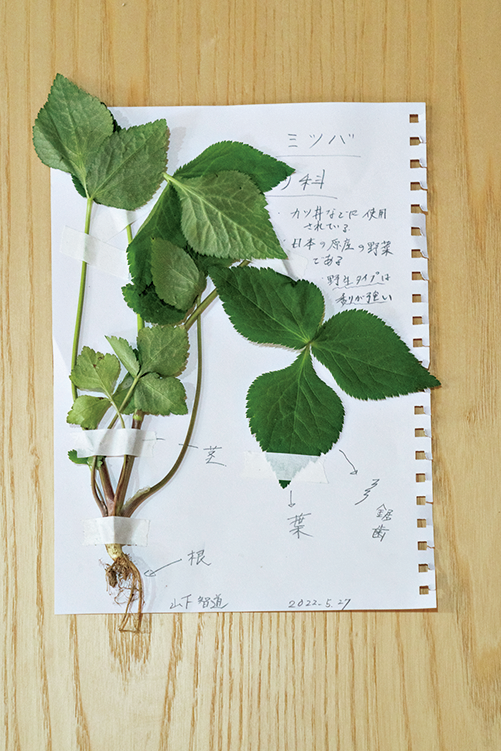 ミツバ
リ科
・カツ丼などに使用
されている
・日本の原産の野菜
である
野生タイプは
香りが強い
茎
葉
鋸歯
根
山下 智道
2022.5.27